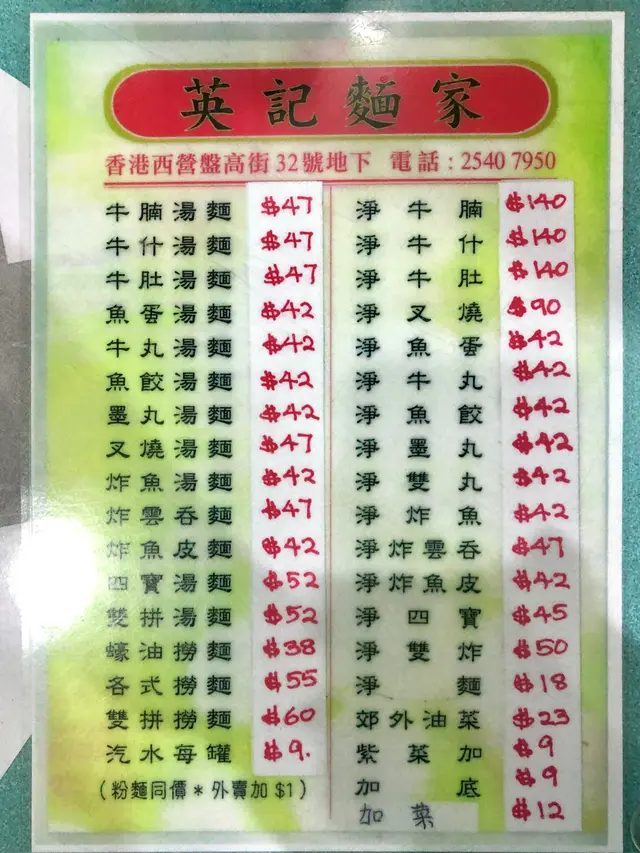 英記麵家
香港西營盤高街32號地下 電話:2540 7950
牛腩湯麵 $47
牛什湯麵 $47
牛肚湯麵 $47
魚蛋湯麵 $42
牛丸湯麵 $42
魚餃湯麵 $42
墨丸湯麵 $42
叉燒湯麵 $47
炸魚湯麵 $42
炸雲吞麵 $47
炸魚皮麵 $42
四寶湯麵 $52
雙拼湯麵 $52
蠔油撈麵 $38
各式撈麵 $55
雙拼撈麵 $60
汽水每罐 $9.
(粉麵同價*外賣加$1)
淨牛腩 $140
淨牛什 $140
淨牛肚 $140
淨叉燒 $90
淨魚蛋 $42
淨牛丸 $42
淨魚餃 $42
淨墨丸 $42
淨雙丸 $42
淨炸魚 $42
淨炸雲吞 $47
淨炸魚皮 $42
淨四寶 $45
淨雙炸 $50
淨麵 $18
郊外油菜 $23
紫菜加 $9
加底 $9
加菜 $12